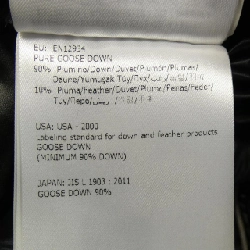 EU: EN12934
PURE GOOSE DOWN
90% Piumino/Down/Duvet/Plumón/Plumas/
10% Piuma/Feather/Duvet/Plume/Penas/Feder/
USA: USA - 2000
Labeling standard for down and feather products
GOOSE DOWN
(MINIMUM 90% DOWN)
JAPAN: JIS L 1903 : 2011
GOOSE DOWN 90%